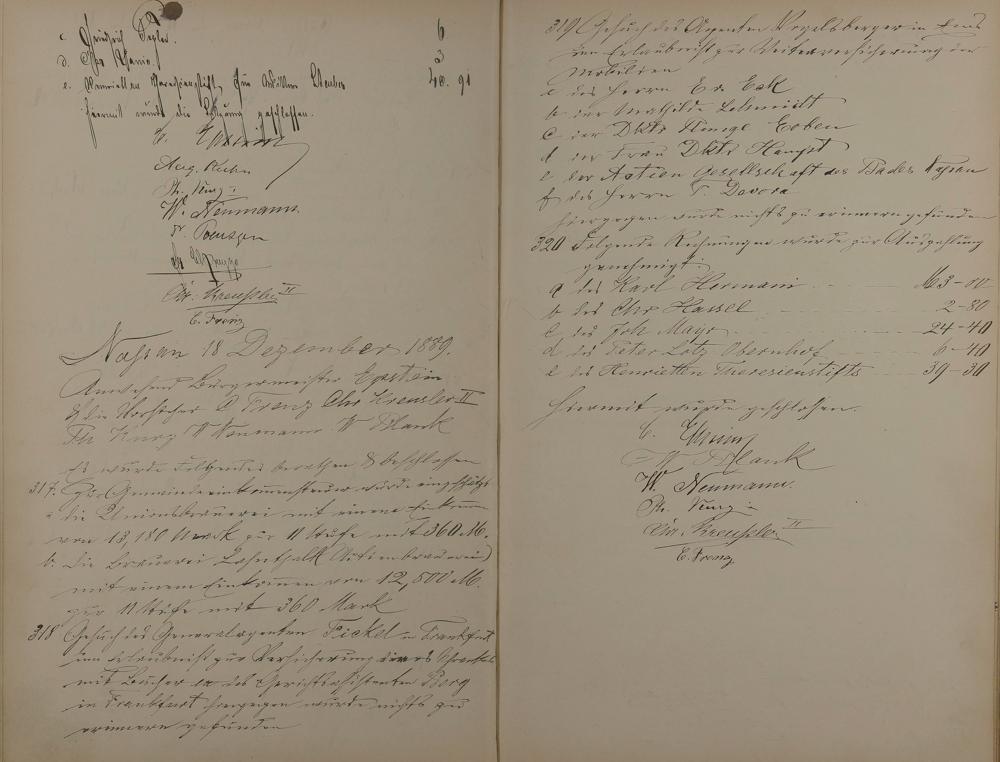 c. Heinrich 6
d. 3
e. 48. 91
Hiermit wurde die Sitzung geschlossen.
E. Epstein
Aug. Kuhn
Ph. Kurz
W. Neumann.
Fr. Poensgen
Chr. Kreusler II
C. Franz
Nassau 18 Dezember 1889.
Anwesend Bürgermeister Epstein
& die Vorsteher C Franz Chr Kreusler II
Ph Kurz W Neumann W Plank
Es wurde Folgendes berathen & beschlossen
317. Zur Gemeindeeinkommensteuer wurde eingeschätzt
a die Unionsbrauerei mit einem Einkommen
von 13,180 Mark zur 11 Stufe mit 360 M.
b. Die Brauerei Lahnthal (Actienbrauerei)
mit einem Einkommen von 12,500 M.
zur 11 Stufe mit 360 Mark
318 Gesuch des Generalagenten Fickel in Frankfurt
um Erlaubniß zur Versicherung
mit Bücher des Gerichtsassistenten Berg
in Frankfurt hiergegen wurde nichts zu
erinnern gefunden
319 Gesuch des Agenten Vogelsberger in Ems
um Erlaubniß zur Weiterversicherung der
Mobilien
a des Herrn Ed. Esk
b der Mathilde
c der Dktr Runge Erben
d der Frau Dktr Haupt
e der Actien Gesellschaft des Bades Nassau
f des Herrn
hiergegen wurde nichts zu erinnern gefunden
320 Folgende Rechnungen wurde zur Auszahlung
genehmigt:
a des Karl Hermani M 3-00
b des Chr Hassel 2-80
c des Joh Mayr 24-40
d des Peter Lotz Obernhof 6-40
e des Henrietten Theresienstifts 39-30
Hiermit wurde geschlossen.
E. Epstein
W Plank
W. Neumann.
Ph. Kurz
Chr. Kreusler II
C. Franz